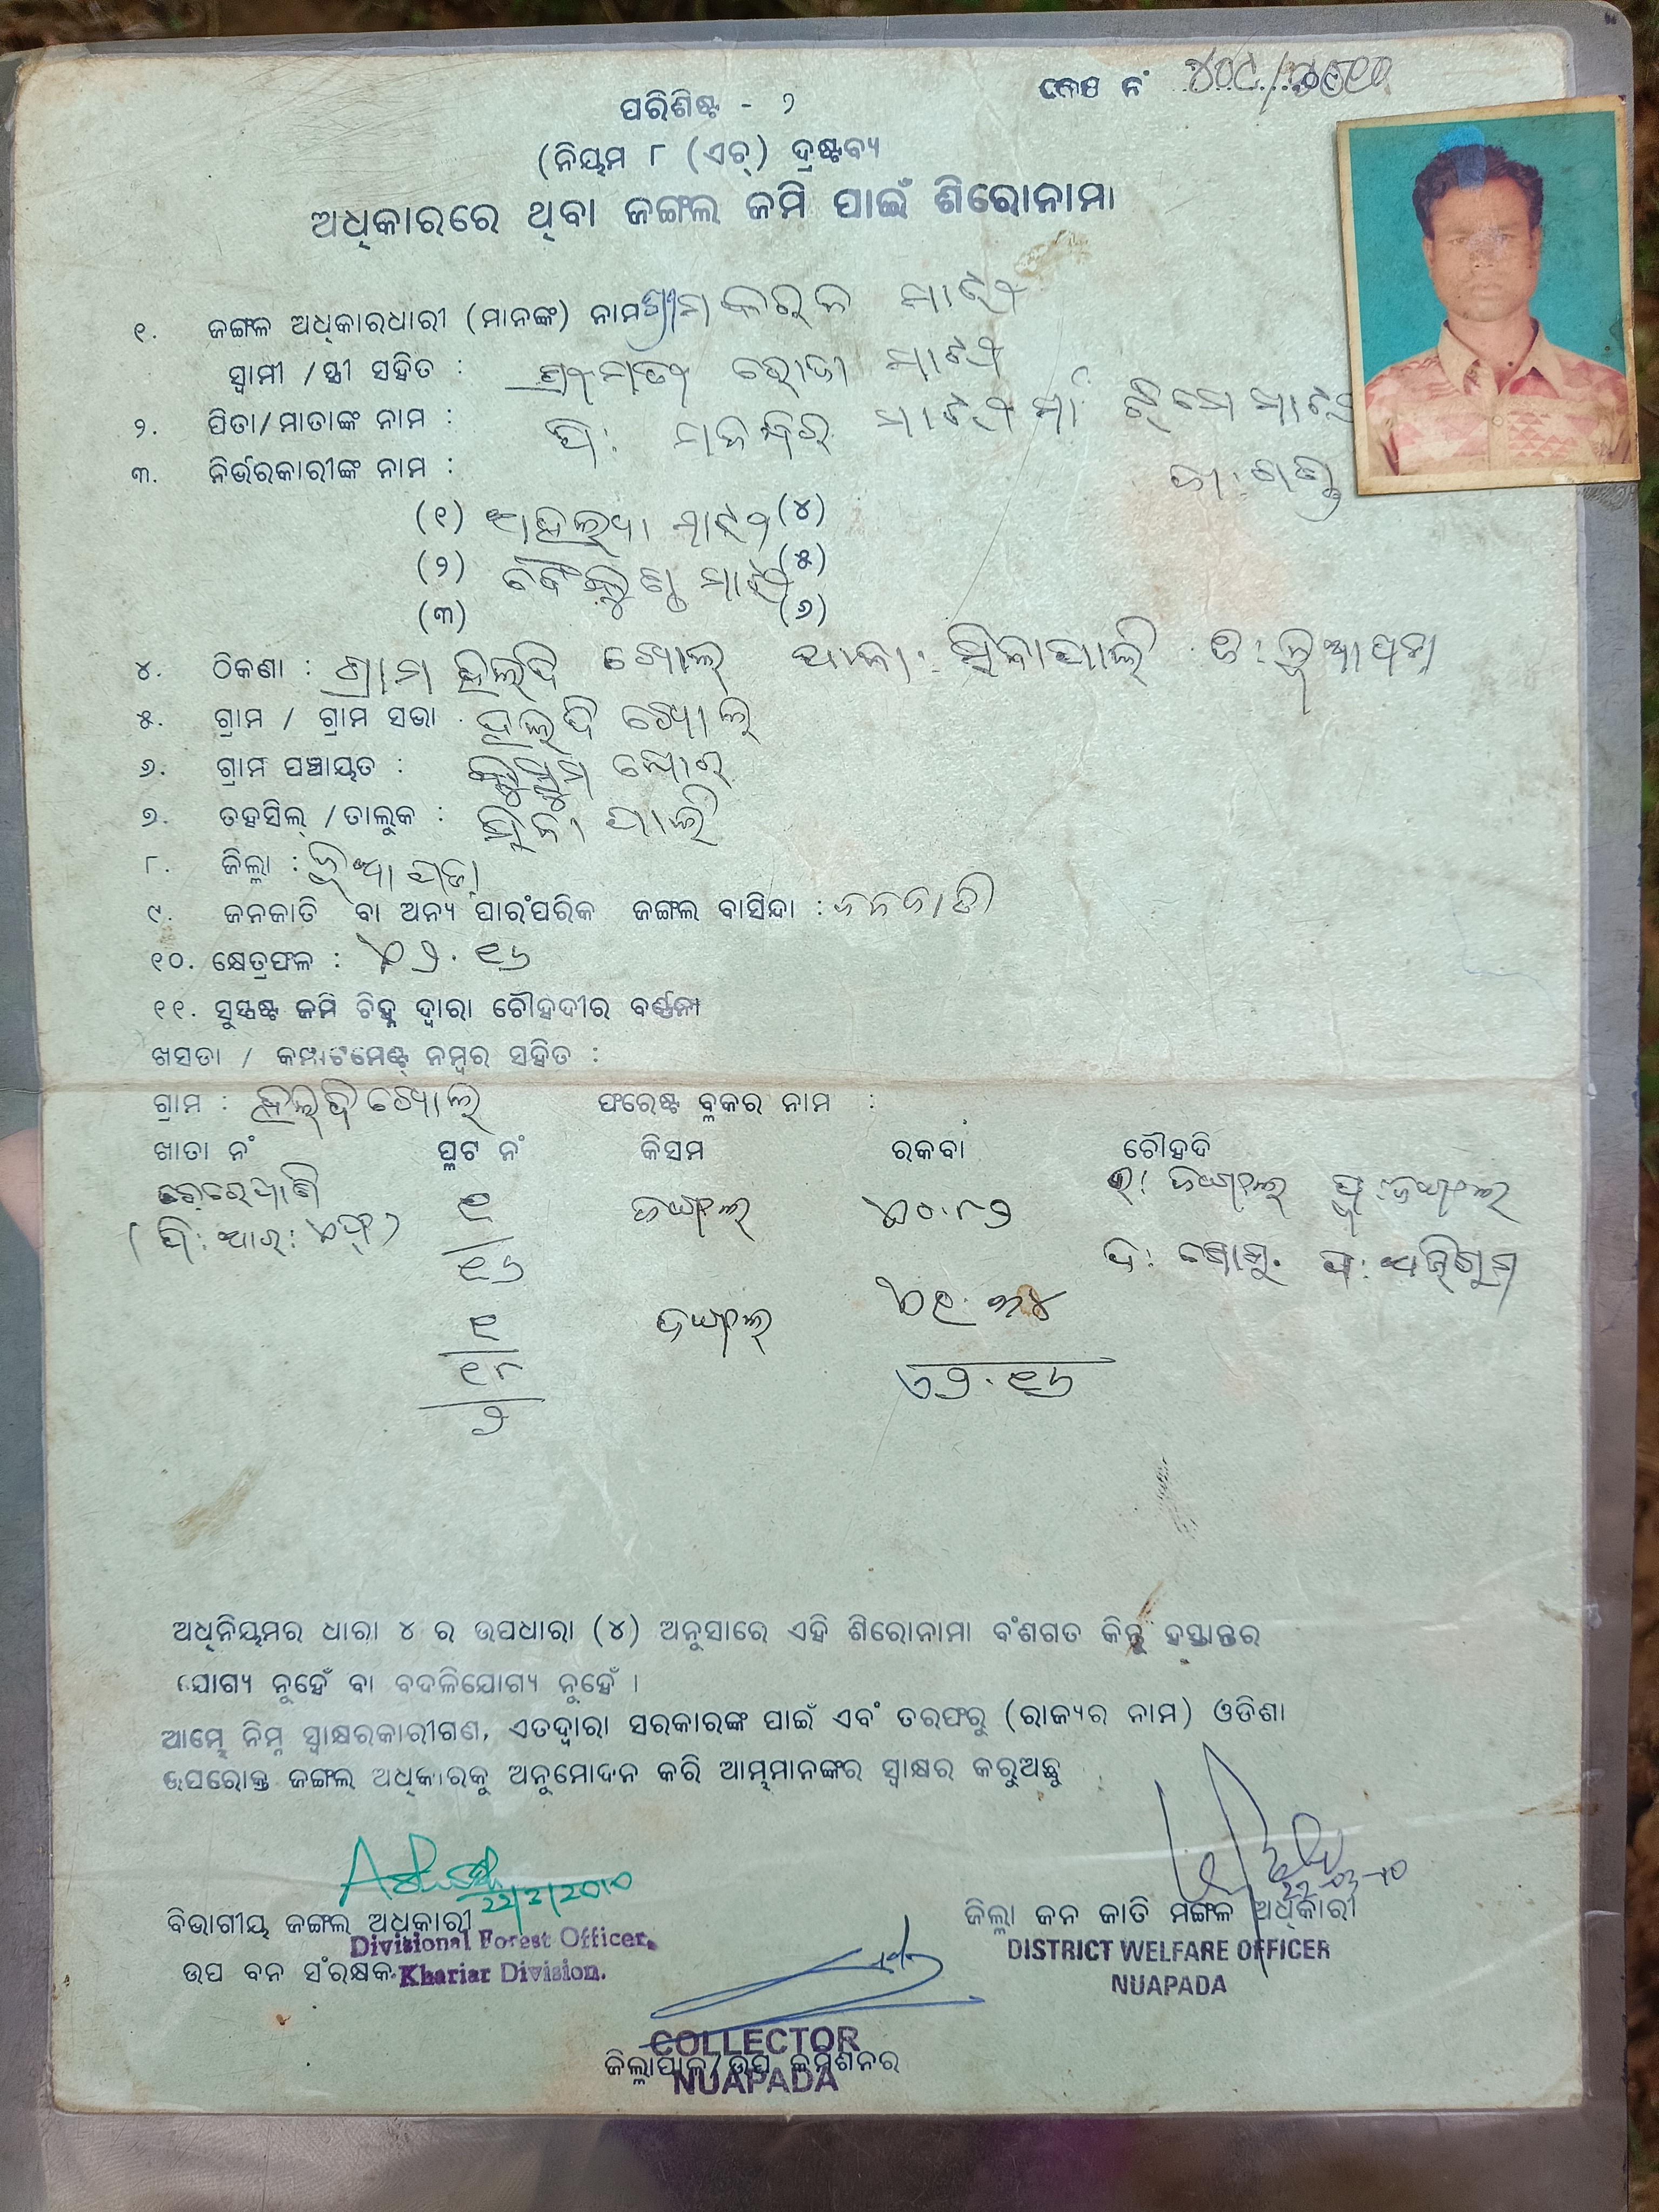 କେସ ନଂ
ପରିଶିଷ୍ଟ - ୨
(ନିୟମ ୮ (ଏଚ୍) ଦ୍ରଷ୍ଟବ୍ୟ
ଅଧିକାରରେ ଥିବା ଜଙ୍ଗଲ ଜମି ପାଇଁ ଶିରୋନାମା
୧. ଜଙ୍ଗଳ ଅଧିକାରଧାରୀ (ମାନଙ୍କ) ନାମ ମାଝୀ
ସ୍ୱାମୀ / ସ୍ତ୍ରୀ ସହିତ : ଶ୍ରୀମତୀ ମାଝୀ
୨. ପିତା/ମାତାଙ୍କ ନାମ : ପି: ମାଝୀ ମା:
୩. ନିର୍ଭରକାରୀଙ୍କ ନାମ : ଜା: ଗଣ୍ଡ
(୧) ଅହଲ୍ୟା ମାଝୀ (୪)
(୨) ବୈକୁଣ୍ଠ ମାଝୀ (୫)
(୩) (୬)
୪. ଠିକଣା : ଗ୍ରାମ ହଲଦି ଖୋଲ୍ ଥାନା: ସିନାପାଲି ଜି: ନୂଆପଡା
୫. ଗ୍ରାମ / ଗ୍ରାମ ସଭା : ହଲଦି ଖୋଲ୍
୬. ଗ୍ରାମ ପଞ୍ଚାୟତ :
୭. ତହସିଲ୍ / ତାଲୁକ : ସିନାପାଲି
୮. ଜିଲ୍ଲା : ନୂଆପଡା
୯. ଜନଜାତି ବା ଅନ୍ୟ ପାରଂପରିକ ଜଙ୍ଗଲ ବାସିନ୍ଦା : ଜନଜାତି
୧୦. କ୍ଷେତ୍ରଫଳ : ୨.୧୬
୧୧. ସୁସ୍ପଷ୍ଟ ଜମି ଚିହ୍ନ ଦ୍ୱାରା ଚୌହଦୀର ବର୍ଣ୍ଣନା
ଖସଡା / କମ୍ପାଟମେଣ୍ଟ୍ ନମ୍ବର ସହିତ :
ଗ୍ରାମ : ହଲ୍ଦି ଖୋଲ୍ ଫରେଷ୍ଟ ବ୍ଲକର ନାମ :
ଖାତା ନଂ ପ୍ଲଟ ନଂ କିସମ ରକବା ଚୌହଦି
୧ ଜଙ୍ଗଲ୍ ୦.୮୨ ଉ: ଜଙ୍ଗଲ୍ ପୂ: ଜଙ୍ଗଲ
୧୬
୧ ଜଙ୍ଗଲ୍ ୧.୩୪
୧୮ ୨.୧୬
୨
ଅଧିନିୟମର ଧାରା ୪ ର ଉପଧାରା (୪) ଅନୁସାରେ ଏହି ଶିରୋନାମା ବଂଶଗତ କିନ୍ତୁ ହସ୍ତାନ୍ତର
ଯୋଗ୍ୟ ନୁହେଁ ବା ବଦଳିଯୋଗ୍ୟ ନୁହେଁ ।
ଆମ୍ଭେ ନିମ୍ନ ସ୍ୱାକ୍ଷରକାରୀଗଣ, ଏତଦ୍ୱାରା ସରକାରଙ୍କ ପାଇଁ ଏବଂ ତରଫରୁ (ରାଜ୍ୟର ନାମ) ଓଡିଶା
ଉପରୋକ୍ତ ଜଙ୍ଗଲ ଅଧିକାରକୁ ଅନୁମୋଦନ କରି ଆମ୍ଭମାନଙ୍କର ସ୍ୱାକ୍ଷର କରୁଅଛୁ
22/2/2010
22-02-10
ବିଭାଗୀୟ ଜଙ୍ଗଲ ଅଧିକାରୀ ଜିଲ୍ଲା ଜନ ଜାତି ମଙ୍ଗଳ ଅଧିକାରୀ
Divisional Forest Officer, DISTRICT WELFARE OFFICER
ଉପ ବନ ସଂରକ୍ଷକ Khariar Division. NUAPADA
COLLECTOR
ଜିଲ୍ଲାପାଳ/ଉପ କମିଶନର
NUAPADA